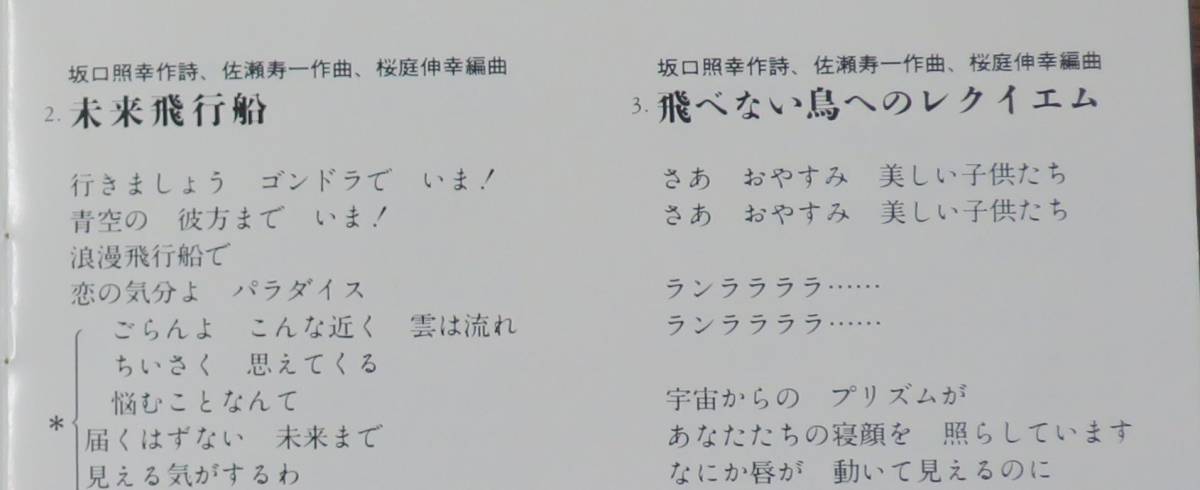 坂口照幸作詩、佐瀬寿一作曲、桜庭伸幸編曲
2. 未来飛行船
行きましょう　ゴンドラで　いま！
青空の　彼方まで　いま！
浪漫飛行船で
恋の気分よ　パラダイス
ごらんよ　こんな近く　雲は流れ
ちいさく　思えてくる
悩むことなんて
*
届くはずない　未来まで
見える気がするわ
坂口照幸作詩、佐瀬寿一作曲、桜庭伸幸編曲
3. 飛べない鳥へのレクイエム
さあ　おやすみ　美しい子供たち
さあ　おやすみ　美しい子供たち
ランラララララ……
ランラララララ……
宇宙からの　プリズムが
あなたたちの寝顔を　照らしています
なにか唇が　動いて見えるのに